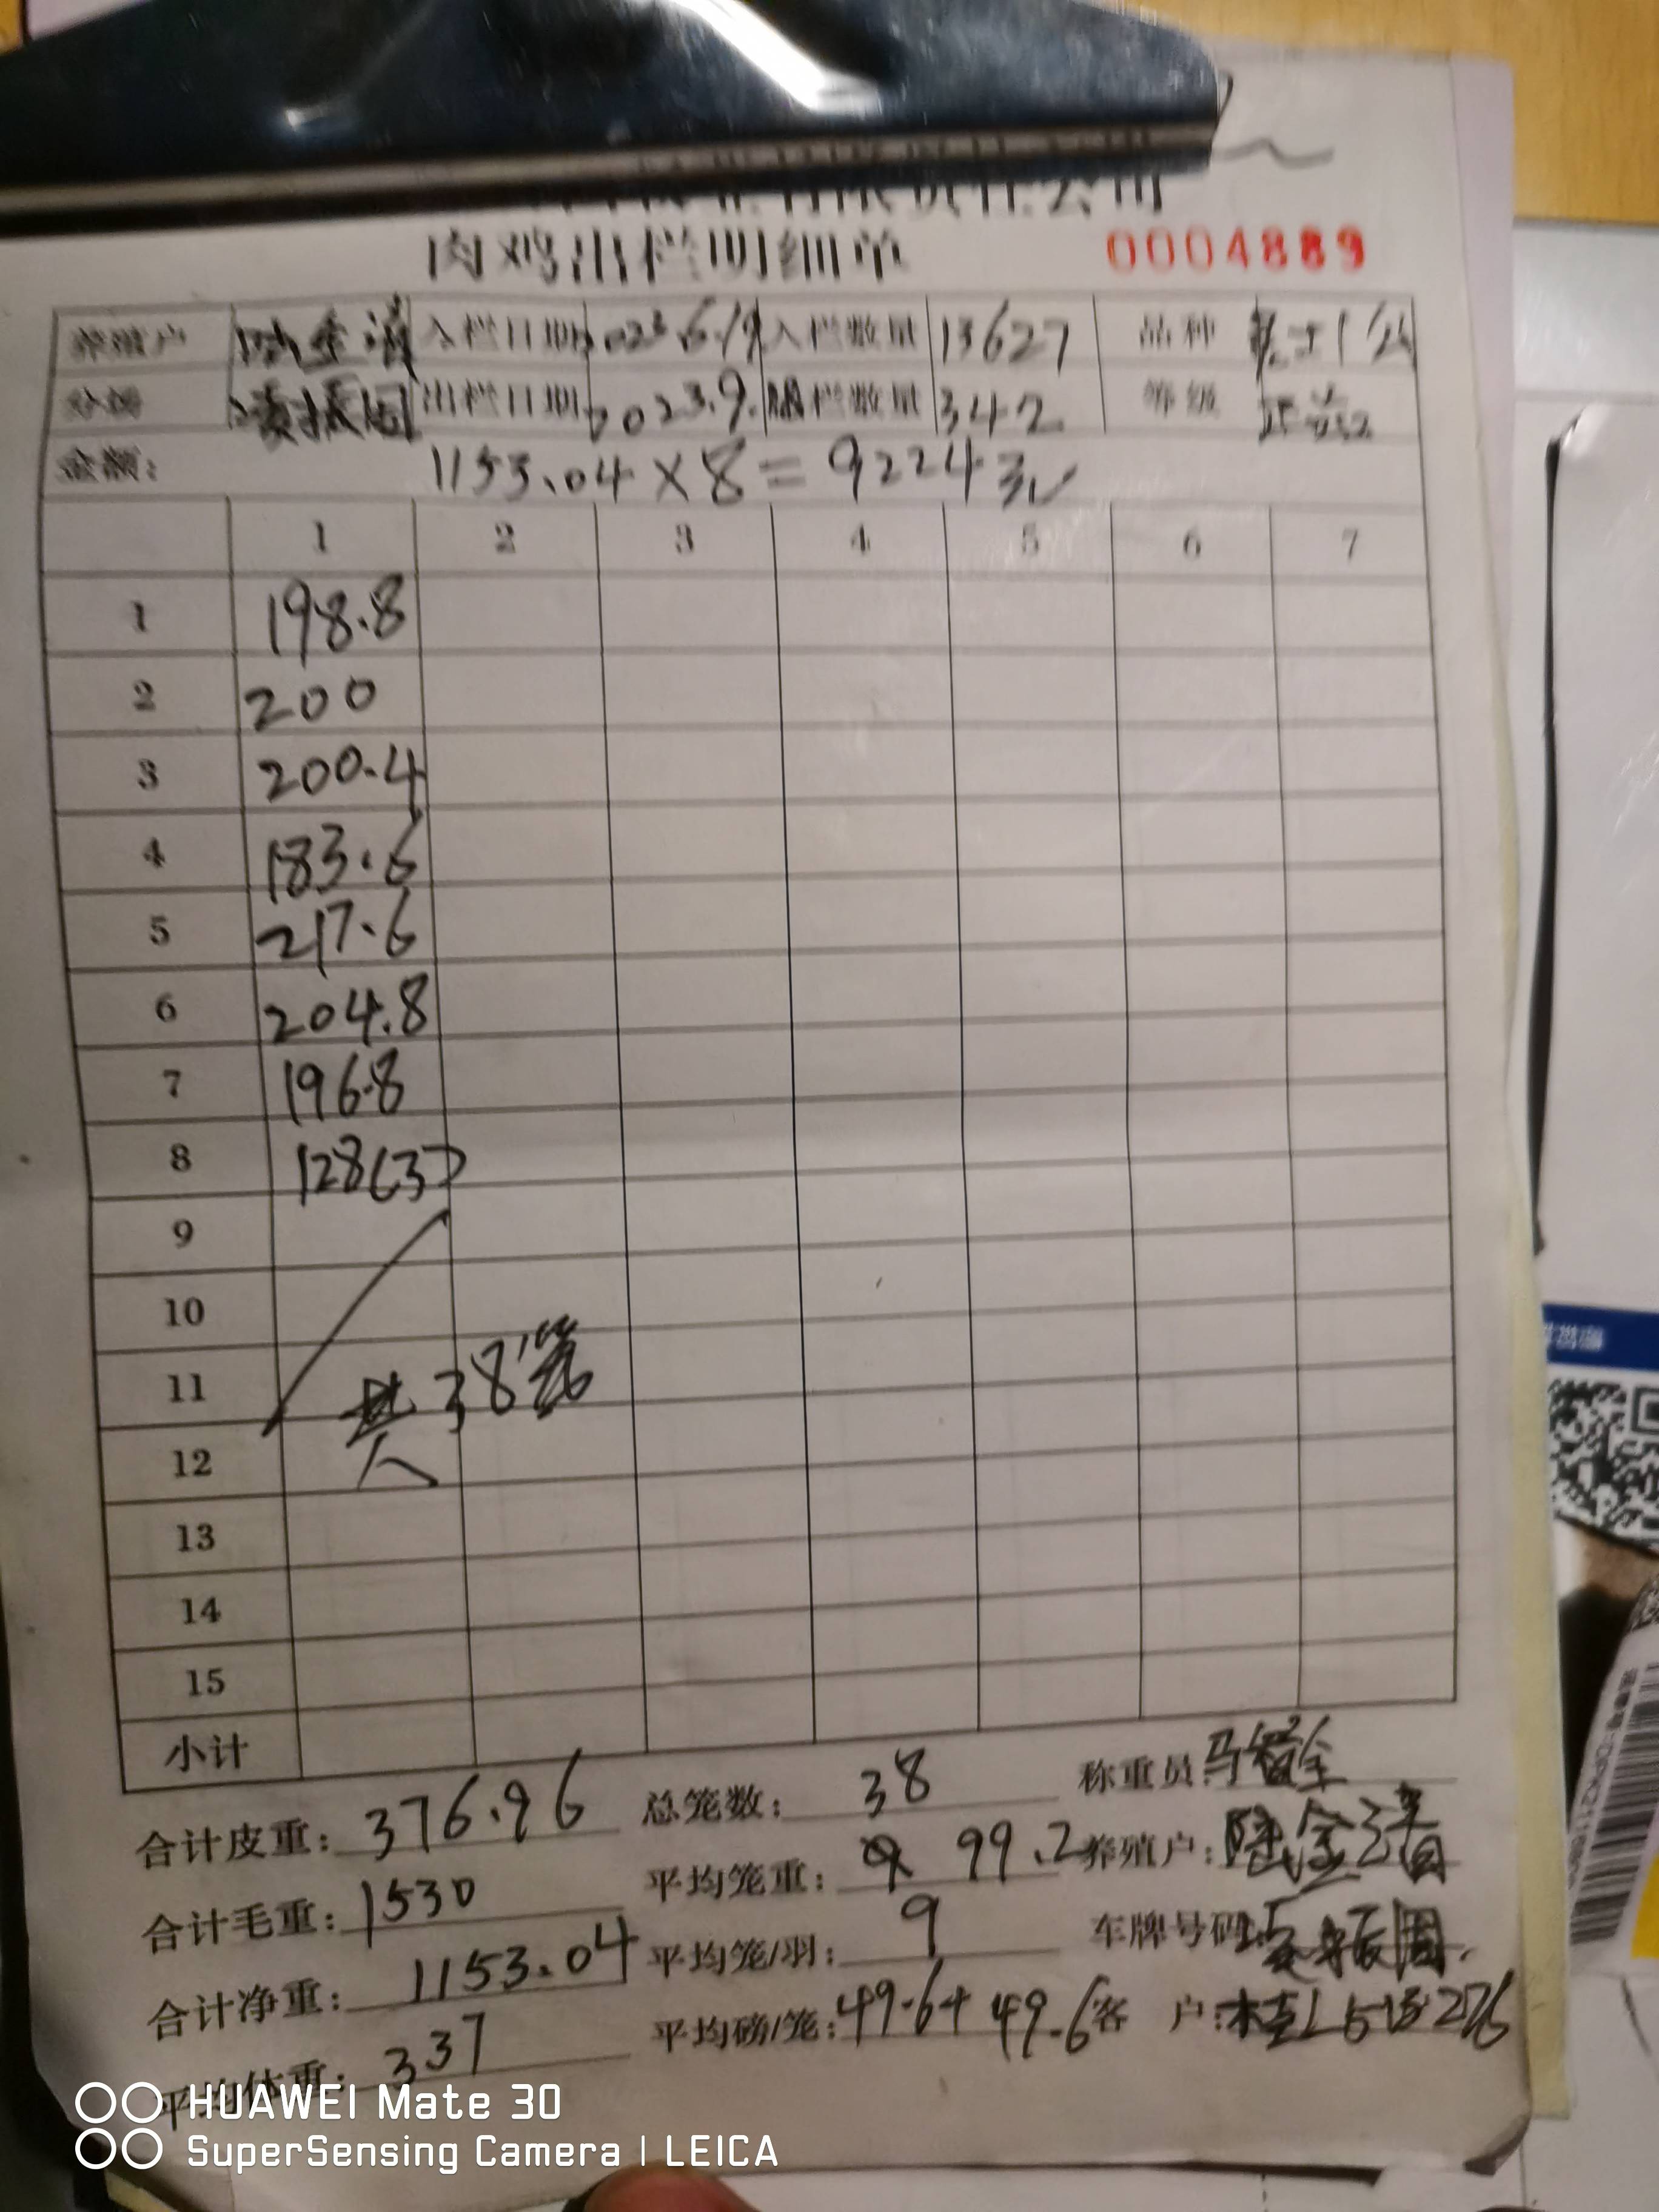 有限责任公司
肉鸡出栏明细单 0004889
养殖户 入栏日期 2023.6.19 入栏数量 13627 品种
出栏日期 2023.9. 出栏数量 342 等级
金额: 1153.04×8=9224元
1 2 3 4 5 6 7
1 198.8
2 200
3 200.4
4 183.6
5 217.6
6 204.8
7 196.8
8 128(3)
9
10
11 共38笼
12
13
14
15
小计
合计皮重: 376.96 总笼数: 38 称重员
合计毛重: 1530 平均笼重: 99.2 养殖户: 陆金清
合计净重: 1153.04 平均笼/羽: 9 车牌号码:
平均体重: 337 平均磅/笼: 49.6+49.6 客 户:
HUAWEI Mate 30
SuperSensing Camera | LEICA